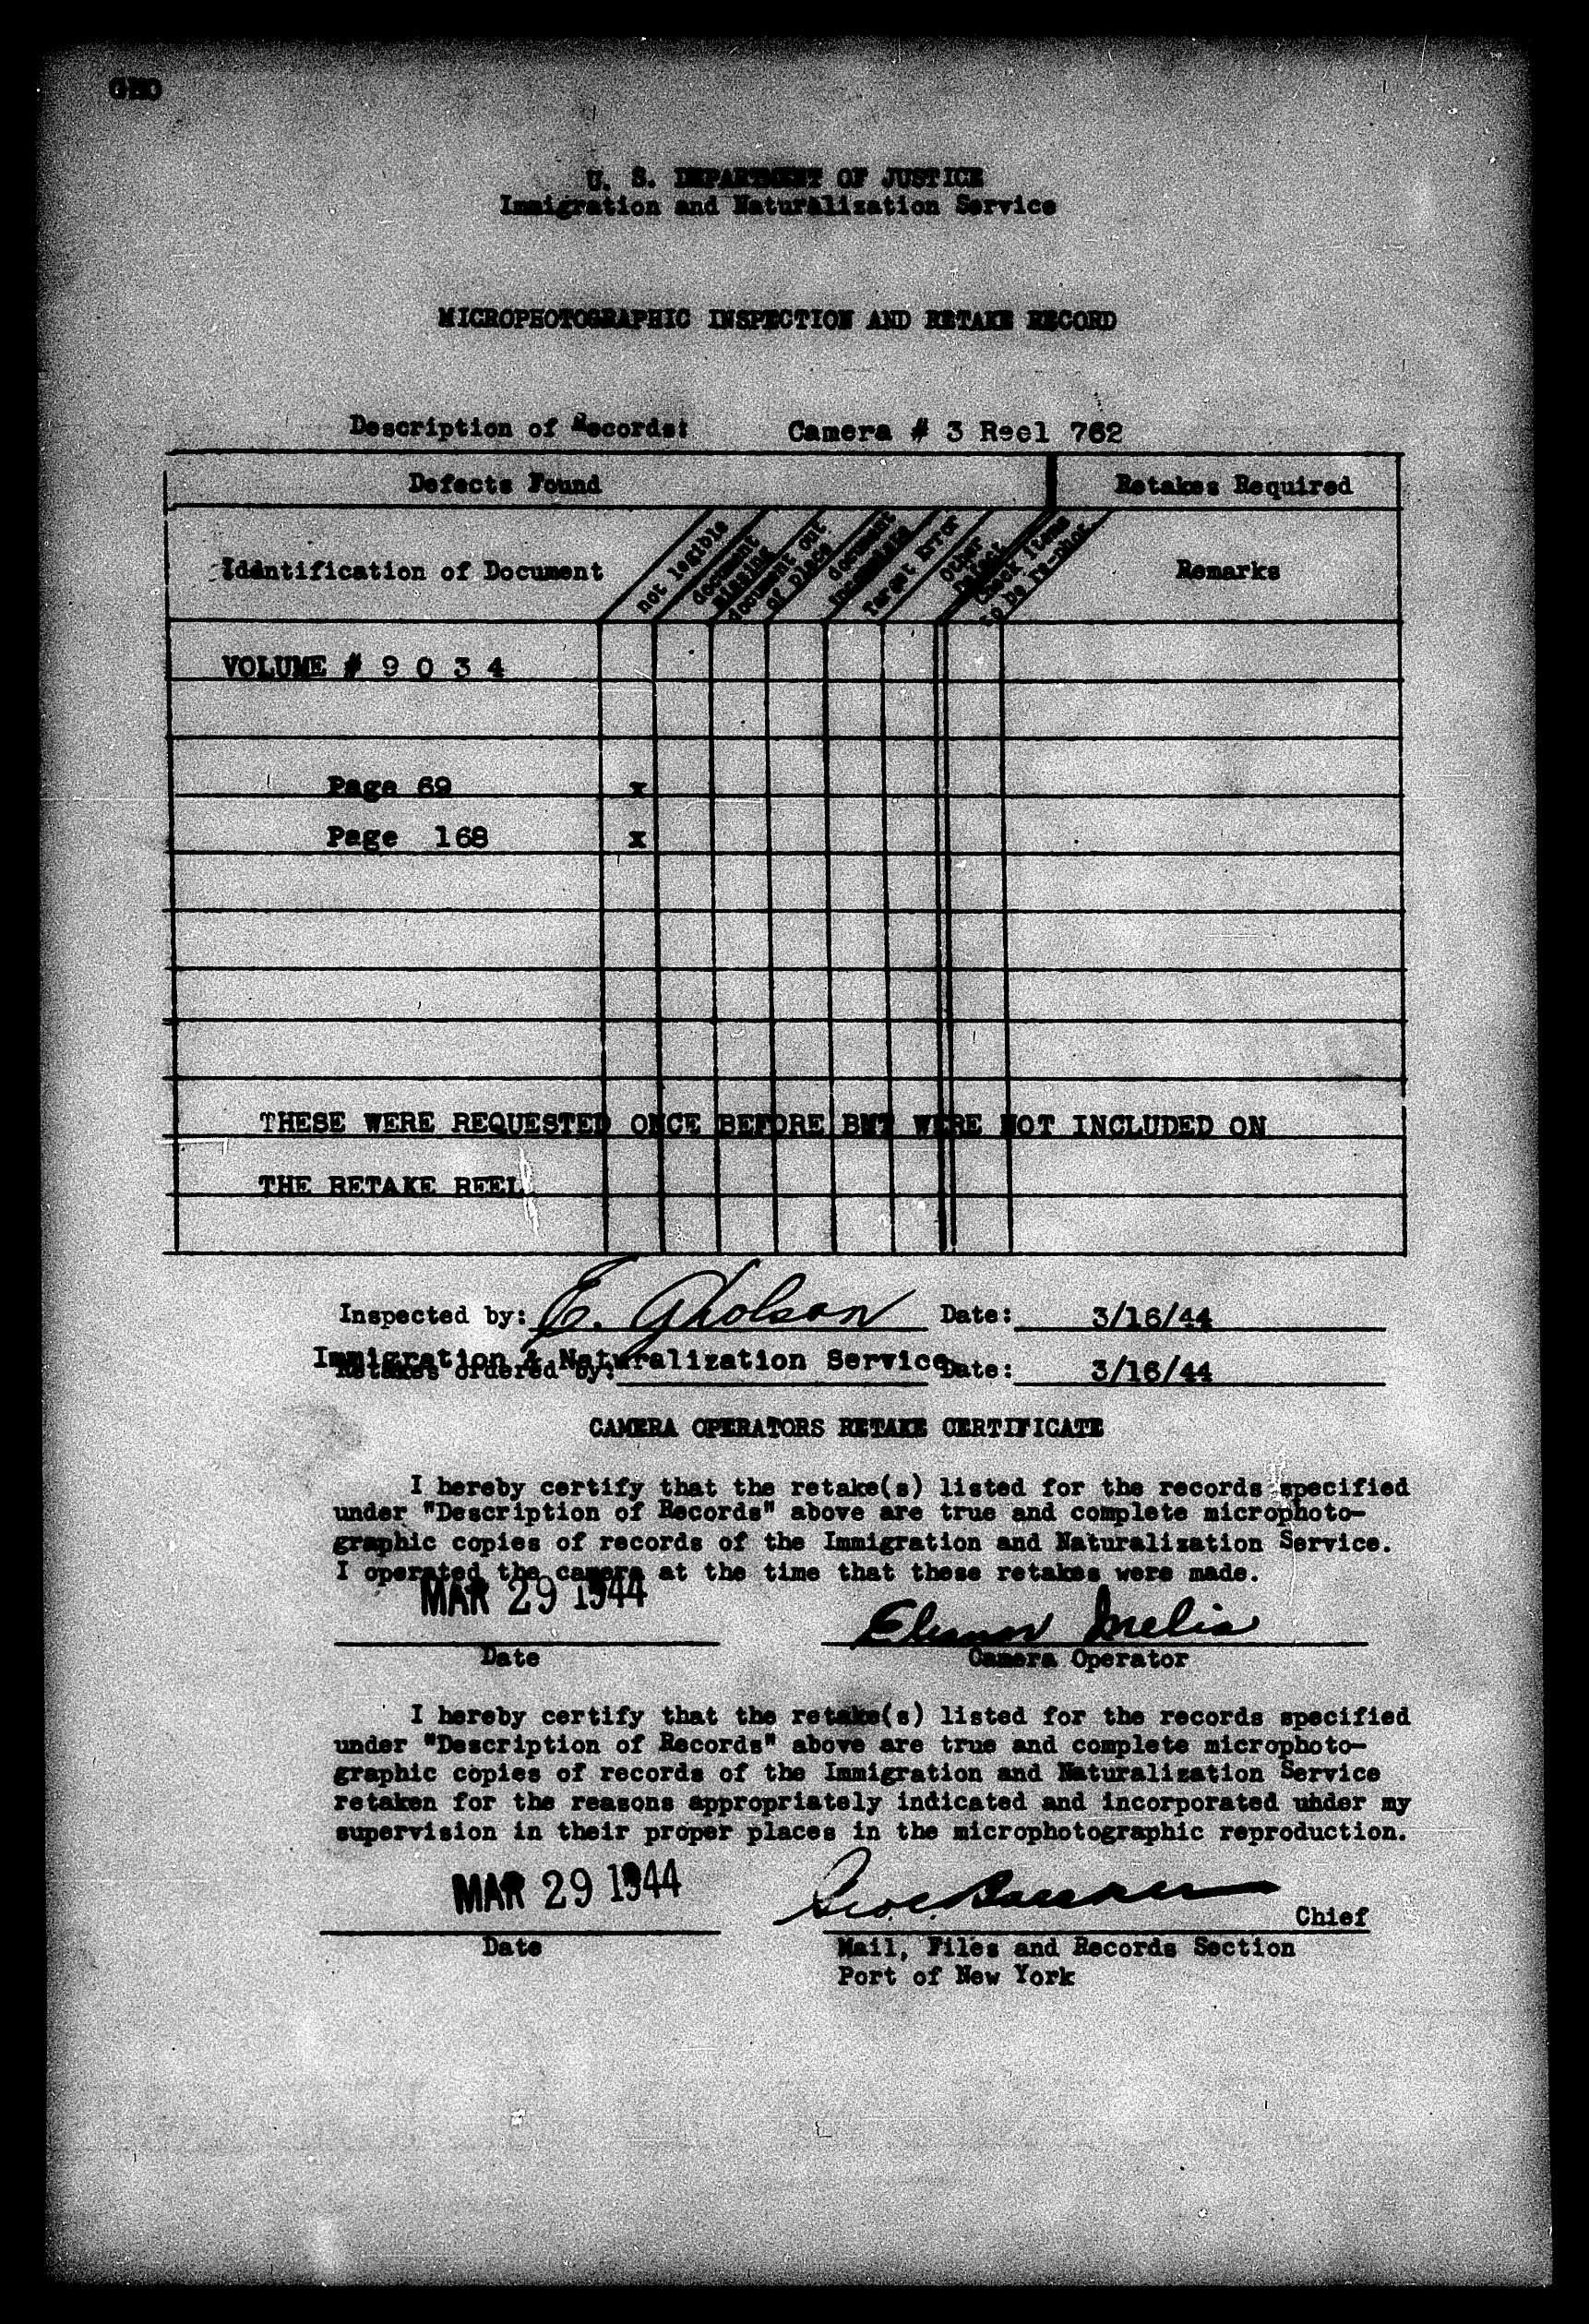 GEO
U. S. DEPARTMENT OF JUSTICE
Immigration and Naturalization Service
MICROPHOTOGRAPHIC INSPECTION AND RETAKE RECORD
Description of Records: Camera # 3 Reel 762
Defects Found Retakes Required
Identification of Document
not legible
document missing
document out of place
document incomplete
Target Error
Other Defect
Check items to be re-phot
Remarks
VOLUME # 9 0 3 4
Page 69 x
Page 168 x
THESE WERE REQUESTED ONCE BEFORE BUT WERE NOT INCLUDED ON
THE RETAKE REEL
Inspected by: E. Gholson Date: 3/16/44
Immigration & Naturalization Service
Retakes ordered by: Date: 3/16/44
CAMERA OPERATORS RETAKE CERTIFICATE
I hereby certify that the retake(s) listed for the records specified
under "Description of Records" above are true and complete microphoto-
graphic copies of records of the Immigration and Naturalization Service.
I operated the camera at the time that these retakes were made.
MAR 29 1944 Eleanor Melia
Date Camera Operator
I hereby certify that the retake(s) listed for the records specified
under "Description of Records" above are true and complete microphoto-
graphic copies of records of the Immigration and Naturalization Service
retaken for the reasons appropriately indicated and incorporated uhder my
supervision in their proper places in the microphotographic reproduction.
MAR 29 1944 Chief
Date Mail, Files and Records Section
Port of New York